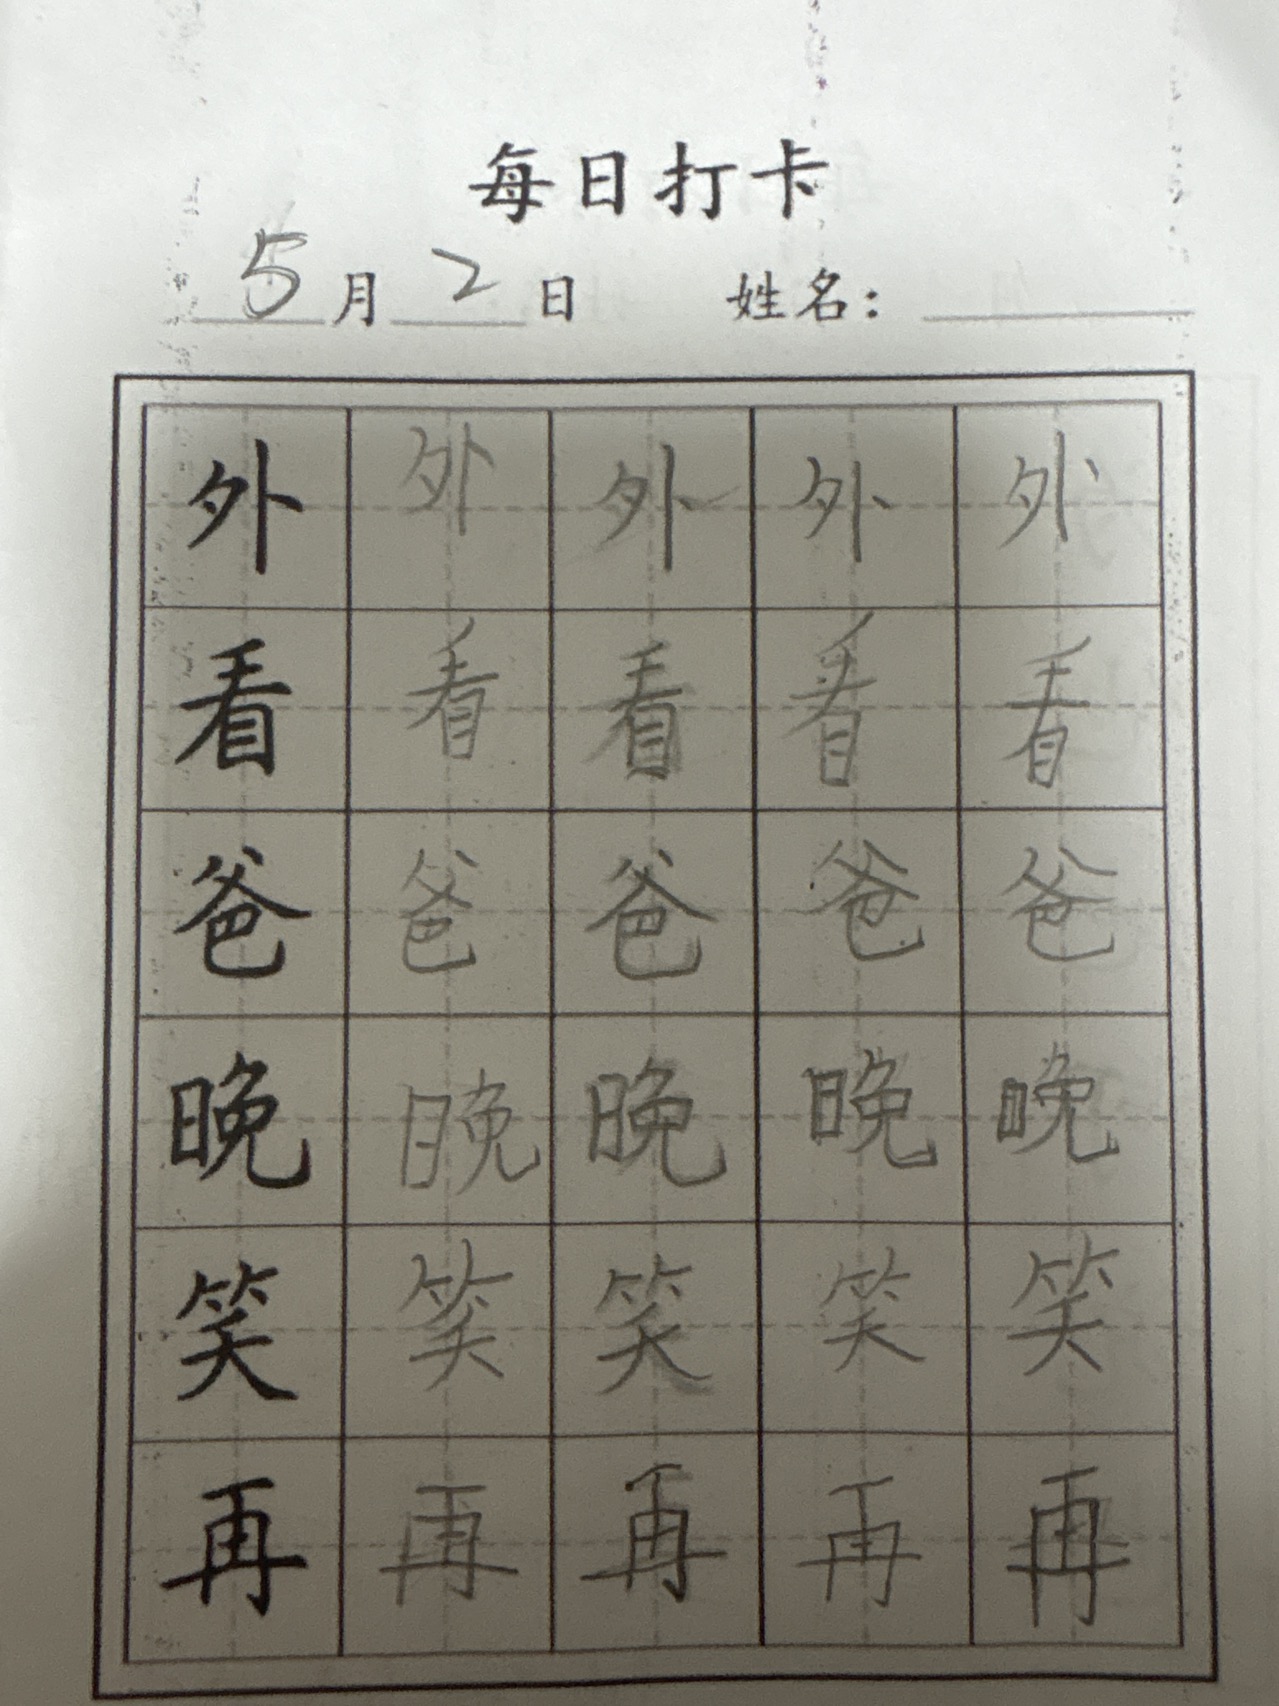 每日打卡
5月2日 姓名：
外 外 外 外 外
看 看 看 看 看
爸 爸 爸 爸 爸
晚 晚 晚 晚 晚
笑 笑 笑 笑 笑
再 再 再 再 再